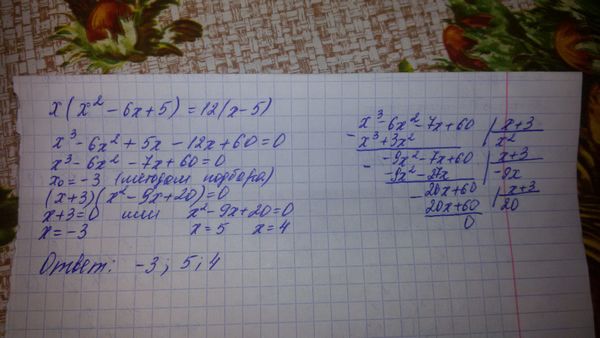 x(x² - 6x + 5) = 12(x - 5)
x³ - 6x² + 5x - 12x + 60 = 0
x³ - 6x² - 7x + 60 = 0
x₀ = -3 (методом подбора)
(x+3)(x² - 9x + 20) = 0
x+3=0 или x² - 9x + 20 = 0
x = -3 x = 5 x = 4
Ответ: -3; 5; 4
- x³ - 6x² - 7x + 60 | x+3
x³ + 3x² x²
- -9x² - 7x + 60 | x+3
-9x² - 27x -9x
- 20x + 60 | x+3
20x + 60 20
0